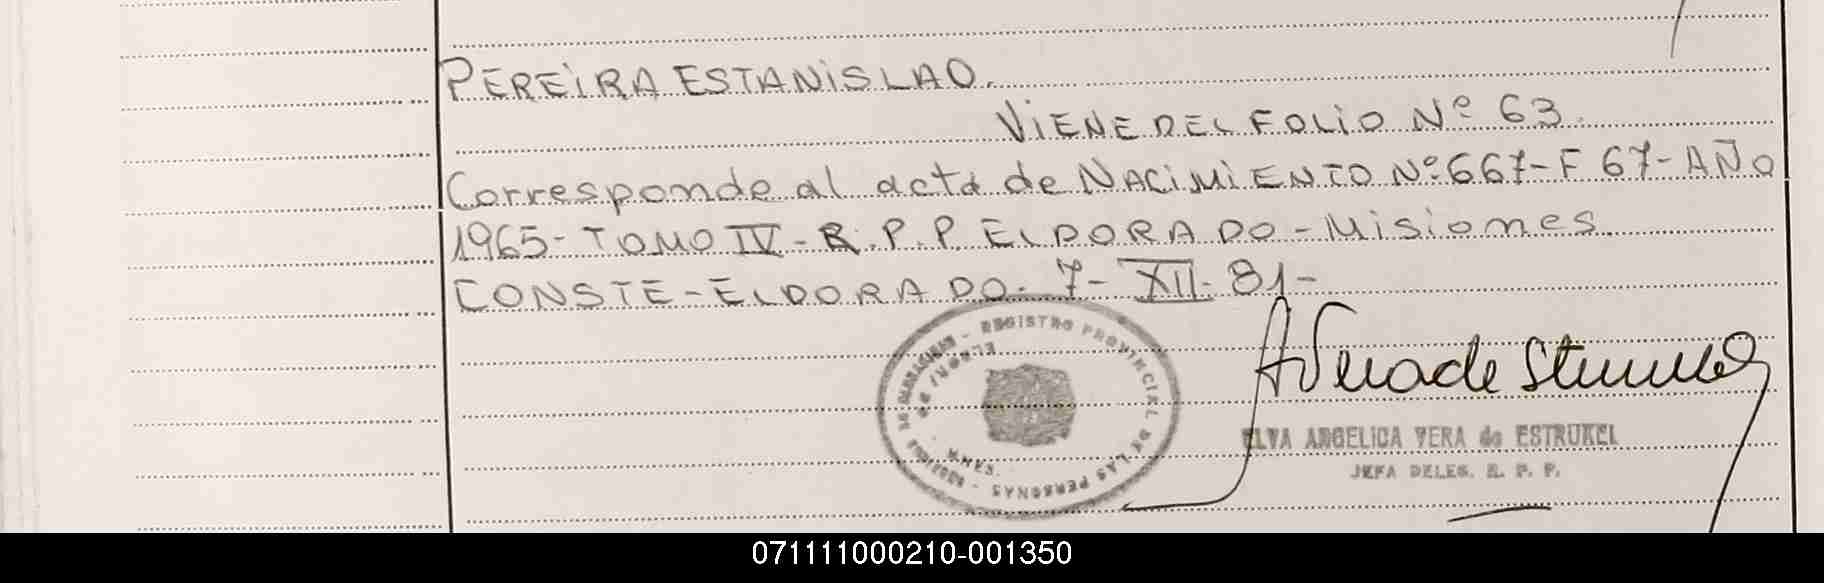 PEREIRA ESTANISLAO.
VIENE DEL FOLIO Nº 63.
Corresponde al acta de NACIMIENTO Nº 667-F 67-AÑO
1965-TOMO IV-R.P.P ELDORADO-Misiones
CONSTE-ELDORADO. 7-XII-81-
REGISTRO PROVINCIAL DE LAS PERSONAS
ELVA ANGELICA VERA de ESTRUKEL
JEFA DELEG. R. P. P.
071111000210-001350